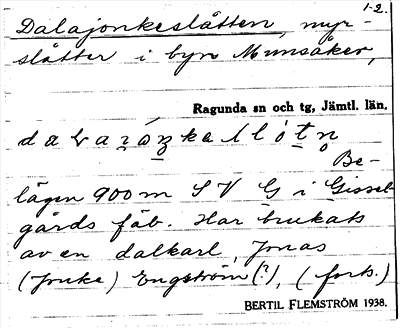 1-2.
Dalajonkeslåtten, myr-
slåtter i byn Munsåker,
Ragunda sn och tg, Jämtl. län.
Be-
lägen 900 m S V G i Gissel-
gårds fäb. Har brukats
av en dalkarl, Jonas
(Jonke) Engström (?), (forts.)
BERTIL FLEMSTRÖM 1938.